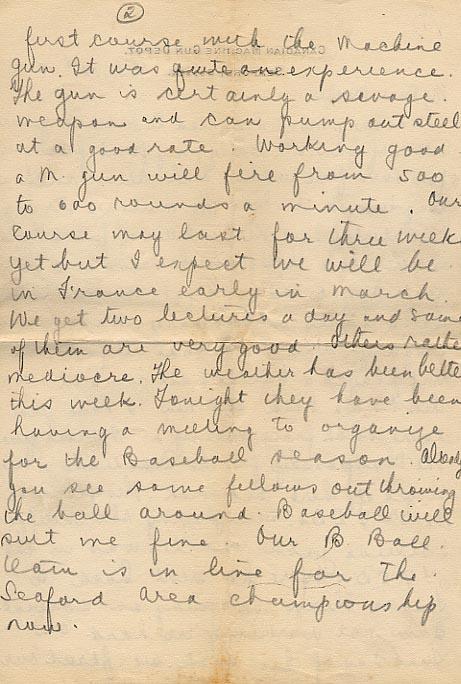 2
first course with the machine
gun. It was quite an experience.
The gun is certainly a savage
weapon and can pump out steel
at a good rate. Working good
a M. gun will fire from 500
to 600 rounds a minute. Our
course may last for three week
yet but I expect we will be
in France early in March.
We get two lectures a day and some
of them are very good. Others rathe
mediocre. The weather has been bette
this week. Tonight they have been
having a meeting to organize
for the Baseball season. Already
you see some fellows out throwing
the ball around. Baseball will
suit me fine. Our B Ball
team is in line for the
Seaford area championship
now.